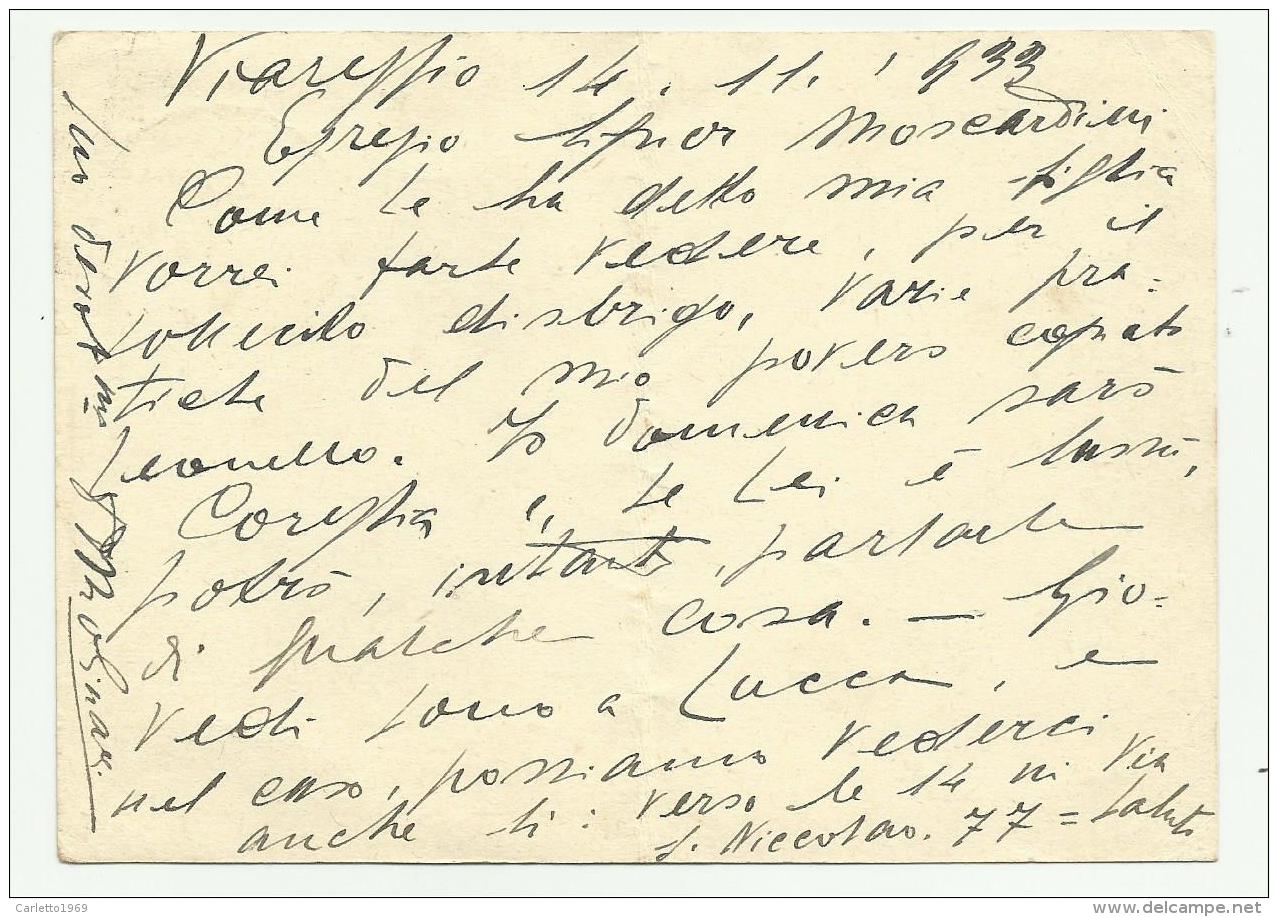 Viareggio 14. 11. '933
Egregio Signor Moscardini
Come Le ha detto mia figlia
vorrei farle vedere, per il
sollecito disbrigo, varie pra=
tiche del mio povero cognato
Leonello. Io domenica sarò
Coreglia e, se Lei è lassù,
potrò, intanto, parlarle
di qualche cosa. — Gio=
vedì sono a Lucca, e
nel caso, possiamo vederci
anche lì: verso le 14 in Via
S. Niccolao. 77 = Saluti
Suo devot.mo Molinari
Carletto1969
delcampe.net